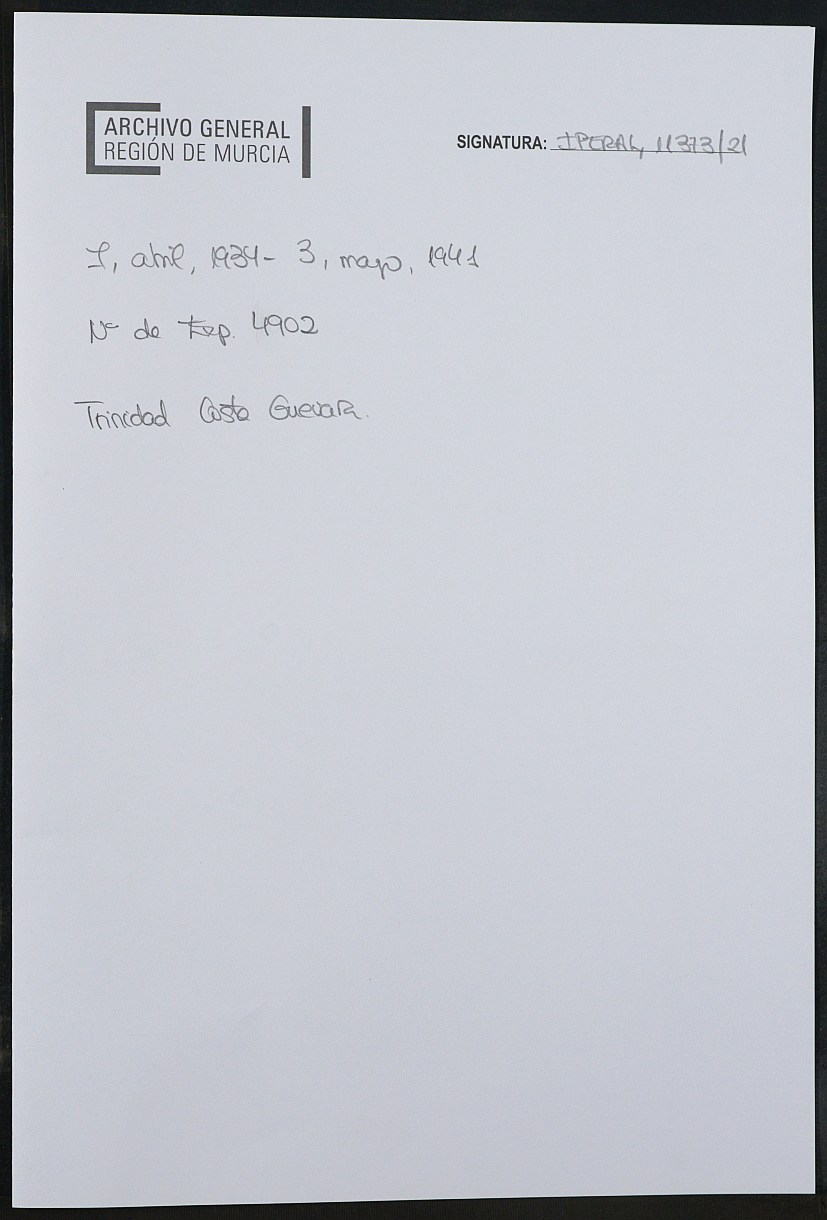 ARCHIVO GENERAL
REGIÓN DE MURCIA
SIGNATURA: IPERAL, 11373/21
1, abril, 1934- 3, mayo, 1941
Nº de Exp. 4902
Trinidad Costa Guevara.